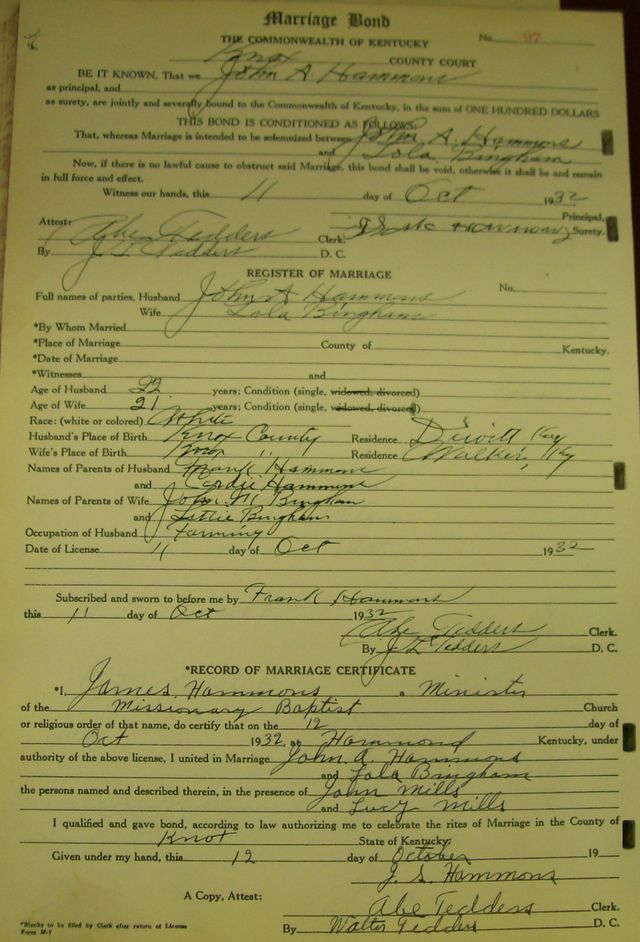 Marriage Bond
THE COMMONWEALTH OF KENTUCKY No. 97
Knox COUNTY COURT
BE IT KNOWN, That we John A. Hammons
as principal, and
as surety, are jointly and severally bound to the Commonwealth of Kentucky, in the sum of ONE HUNDRED DOLLARS
THIS BOND IS CONDITIONED AS FOLLOWS:
That, whereas Marriage is intended to be solemnized between John A. Hammons
and Lola Bingham
Now, if there is no lawful cause to obstruct said Marriage, this bond shall be void, otherwise it shall be and remain
in full force and effect.
Witness our hands, this 11 day of Oct 1932
Principal,
Attest: Abe Tedders Clerk. Surety.
By J. L. Tedders D. C.
REGISTER OF MARRIAGE
Full names of parties, Husband John A Hammons No.
Wife Lola Bingham
*By Whom Married
*Place of Marriage County of Kentucky.
*Date of Marriage
*Witnesses and
Age of Husband 22 years; Condition (single, widowed, divorced)
Age of Wife 21 years; Condition (single, widowed, divorced)
Race: (white or colored) White
Husband's Place of Birth Knox County Residence Dewitt Ky
Wife's Place of Birth Knox " Residence Walker, Ky
Names of Parents of Husband Frank Hammons
and Cordie Hammons
Names of Parents of Wife John M Bingham
and Littie Bingham
Occupation of Husband Farming
Date of License 11 day of Oct 1932
Subscribed and sworn to before me by Frank Hammons
this 11 day of Oct 1932
Abe Tedders Clerk.
By J L Tedders D. C.
*RECORD OF MARRIAGE CERTIFICATE
*I, James Hammons a Minister
of the Missionary Baptist Church
or religious order of that name, do certify that on the 12 day of
Oct 1932, at Hammond Kentucky, under
authority of the above license, I united in Marriage John A. Hammons
and Lola Bingham
the persons named and described therein, in the presence of John Mills
and Lucy Mills
I qualified and gave bond, according to law authorizing me to celebrate the rites of Marriage in the County of
Knox State of Kentucky.
Given under my hand, this 12 day of October 19
J. S. Hammons
A Copy, Attest: Abe Tedders Clerk.
By Walter Tedders D. C.
*Blanks to be filled by Clerk after return of License
Form M-1